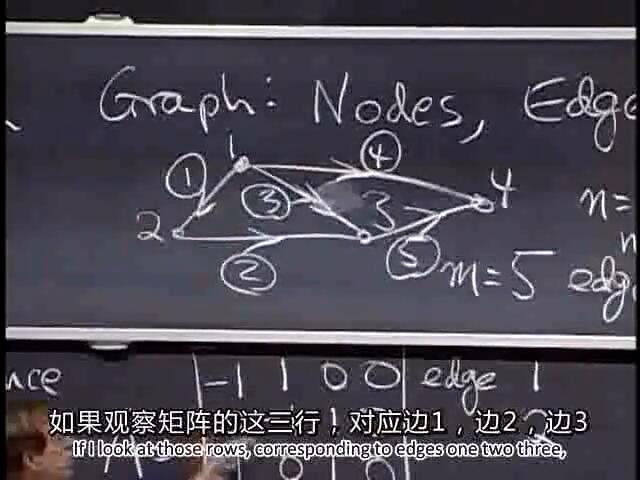 Graph: Nodes, Edge
1 ④
① ③ 4
2 3 n=
② ⑤ m=5 edg
nce -1 1 0 0 edge 1
如果观察矩阵的这三行，对应边1，边2，边3
If I look at those rows, corresponding to edges one two three,